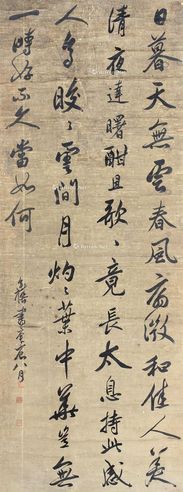 日暮天無雲春風扇微和佳人美
清夜達曙酣且歌〻竟長太息持此感
人多皎〻雲間月灼〻葉中華豈無
一時好不久當如何
書八月